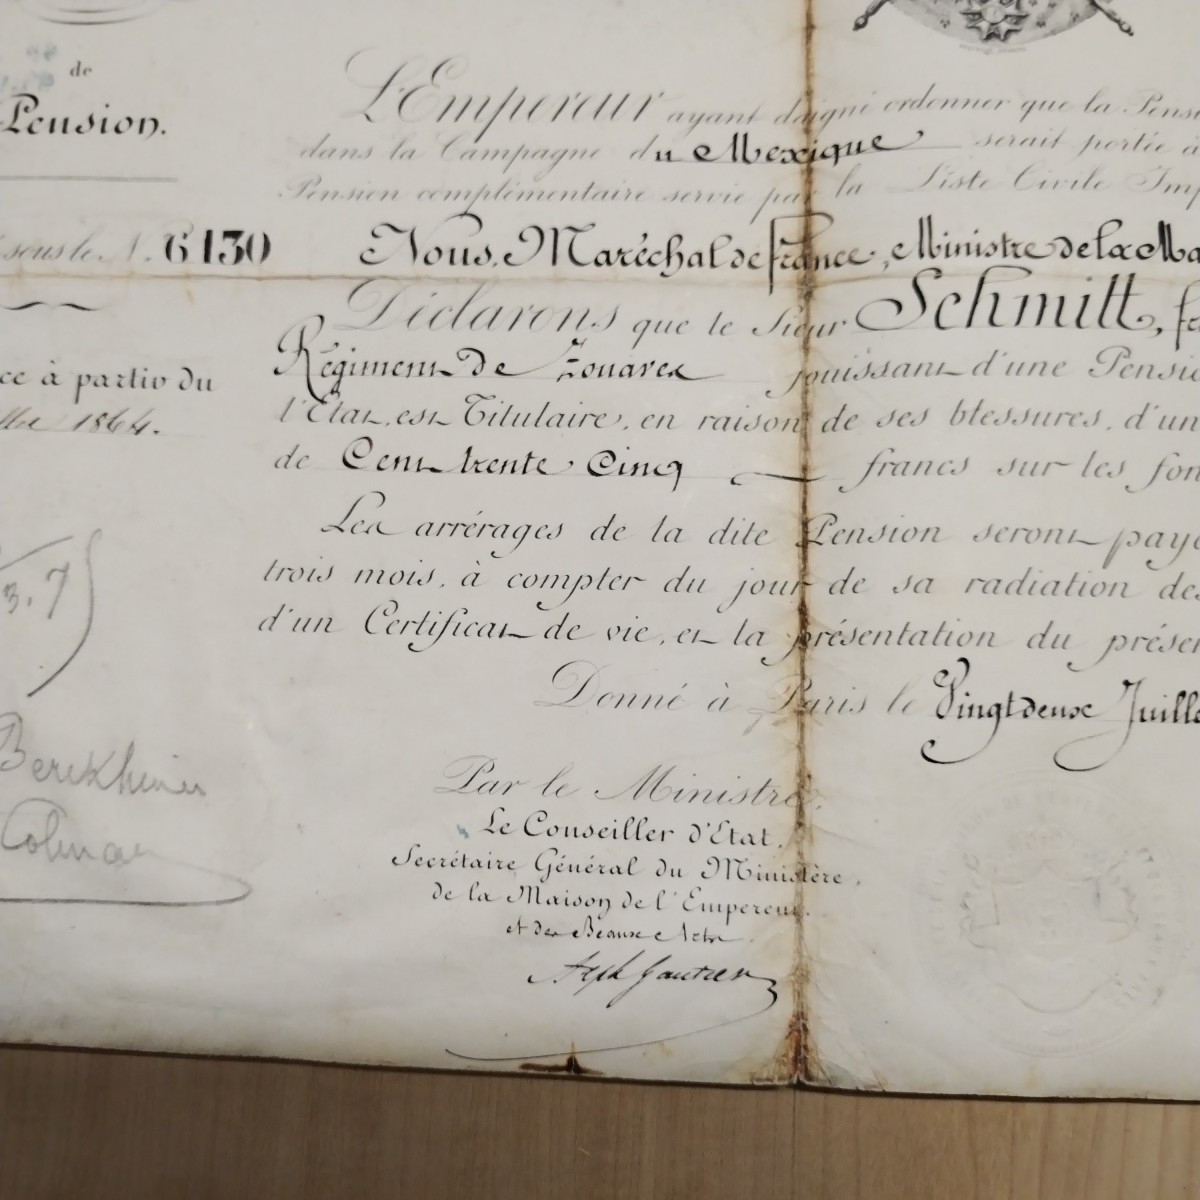 de
Pension.
sous le N. 6130
ce à partir du
1864.
3.7
Colmar
L'Empereur ayant daigné ordonner que la Pensi
dans la Campagne du Mexique serait portée a
Pension complémentaire servie par la Liste Civile Imp
Nous, Maréchal de France, Ministre de la Ma
Déclarons que le Sieur Schmitt, fr
Régiment de Zouaves jouissant d'une Pensio
l'Etat, est Titulaire, en raison de ses blessures, d'un
de Cent trente Cinq francs sur les fon
Les arrérages de la dite Pension seront paye
trois mois, à compter du jour de sa radiation des
d'un Certificat de vie, et la présentation du présen
Donné à Paris le Vingt deux Juille
Par le Ministre,
Le Conseiller d'Etat,
Secrétaire Général du Ministère
de la Maison de l'Empereur
et des Beaux Arts
Gautier